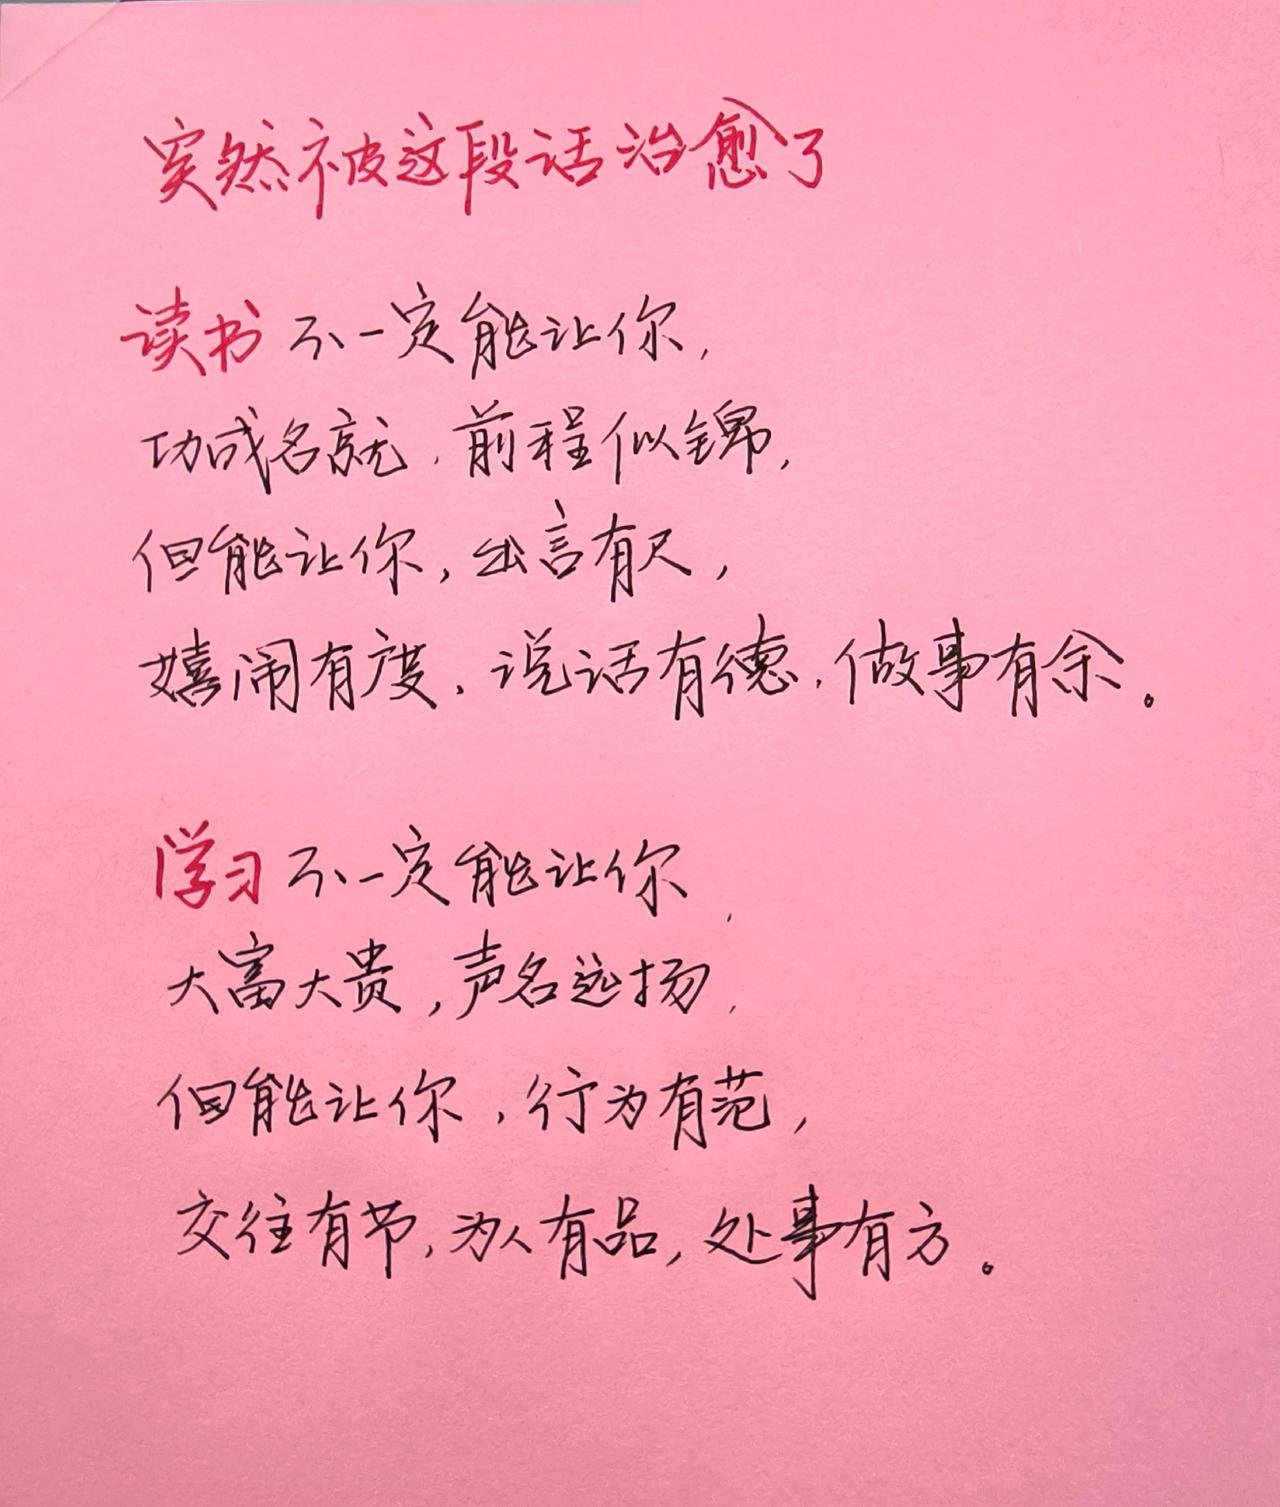 突然被这段话治愈了
读书不一定能让你,
功成名就,前程似锦,
但能让你,出言有尺,
嬉闹有度,说话有德,做事有余。
学习不一定能让你,
大富大贵,声名远扬,
但能让你,行为有范,
交往有节,为人有品,处事有方。